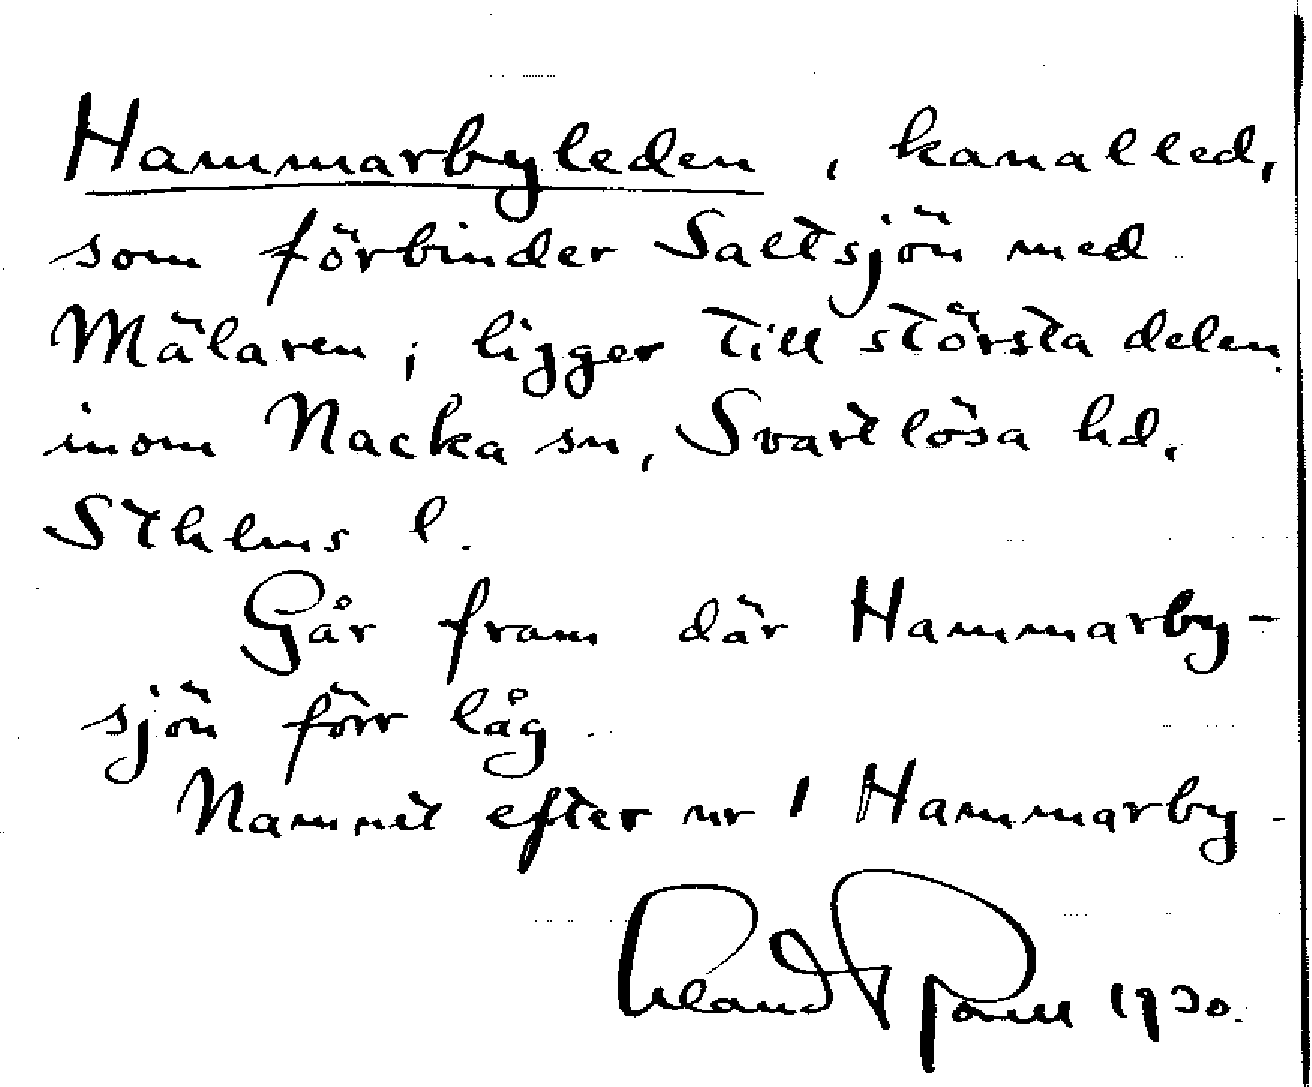 Hammarbyleden, kanalled,
som förbinder Saltsjön med
Mälaren; ligger till största delen
inom Nacka sn, Svartlösa hd,
Sthlms l.
Går fram där Hammarby-
sjön förr låg.
Namnet efter nr 1 Hammarby.
1930.